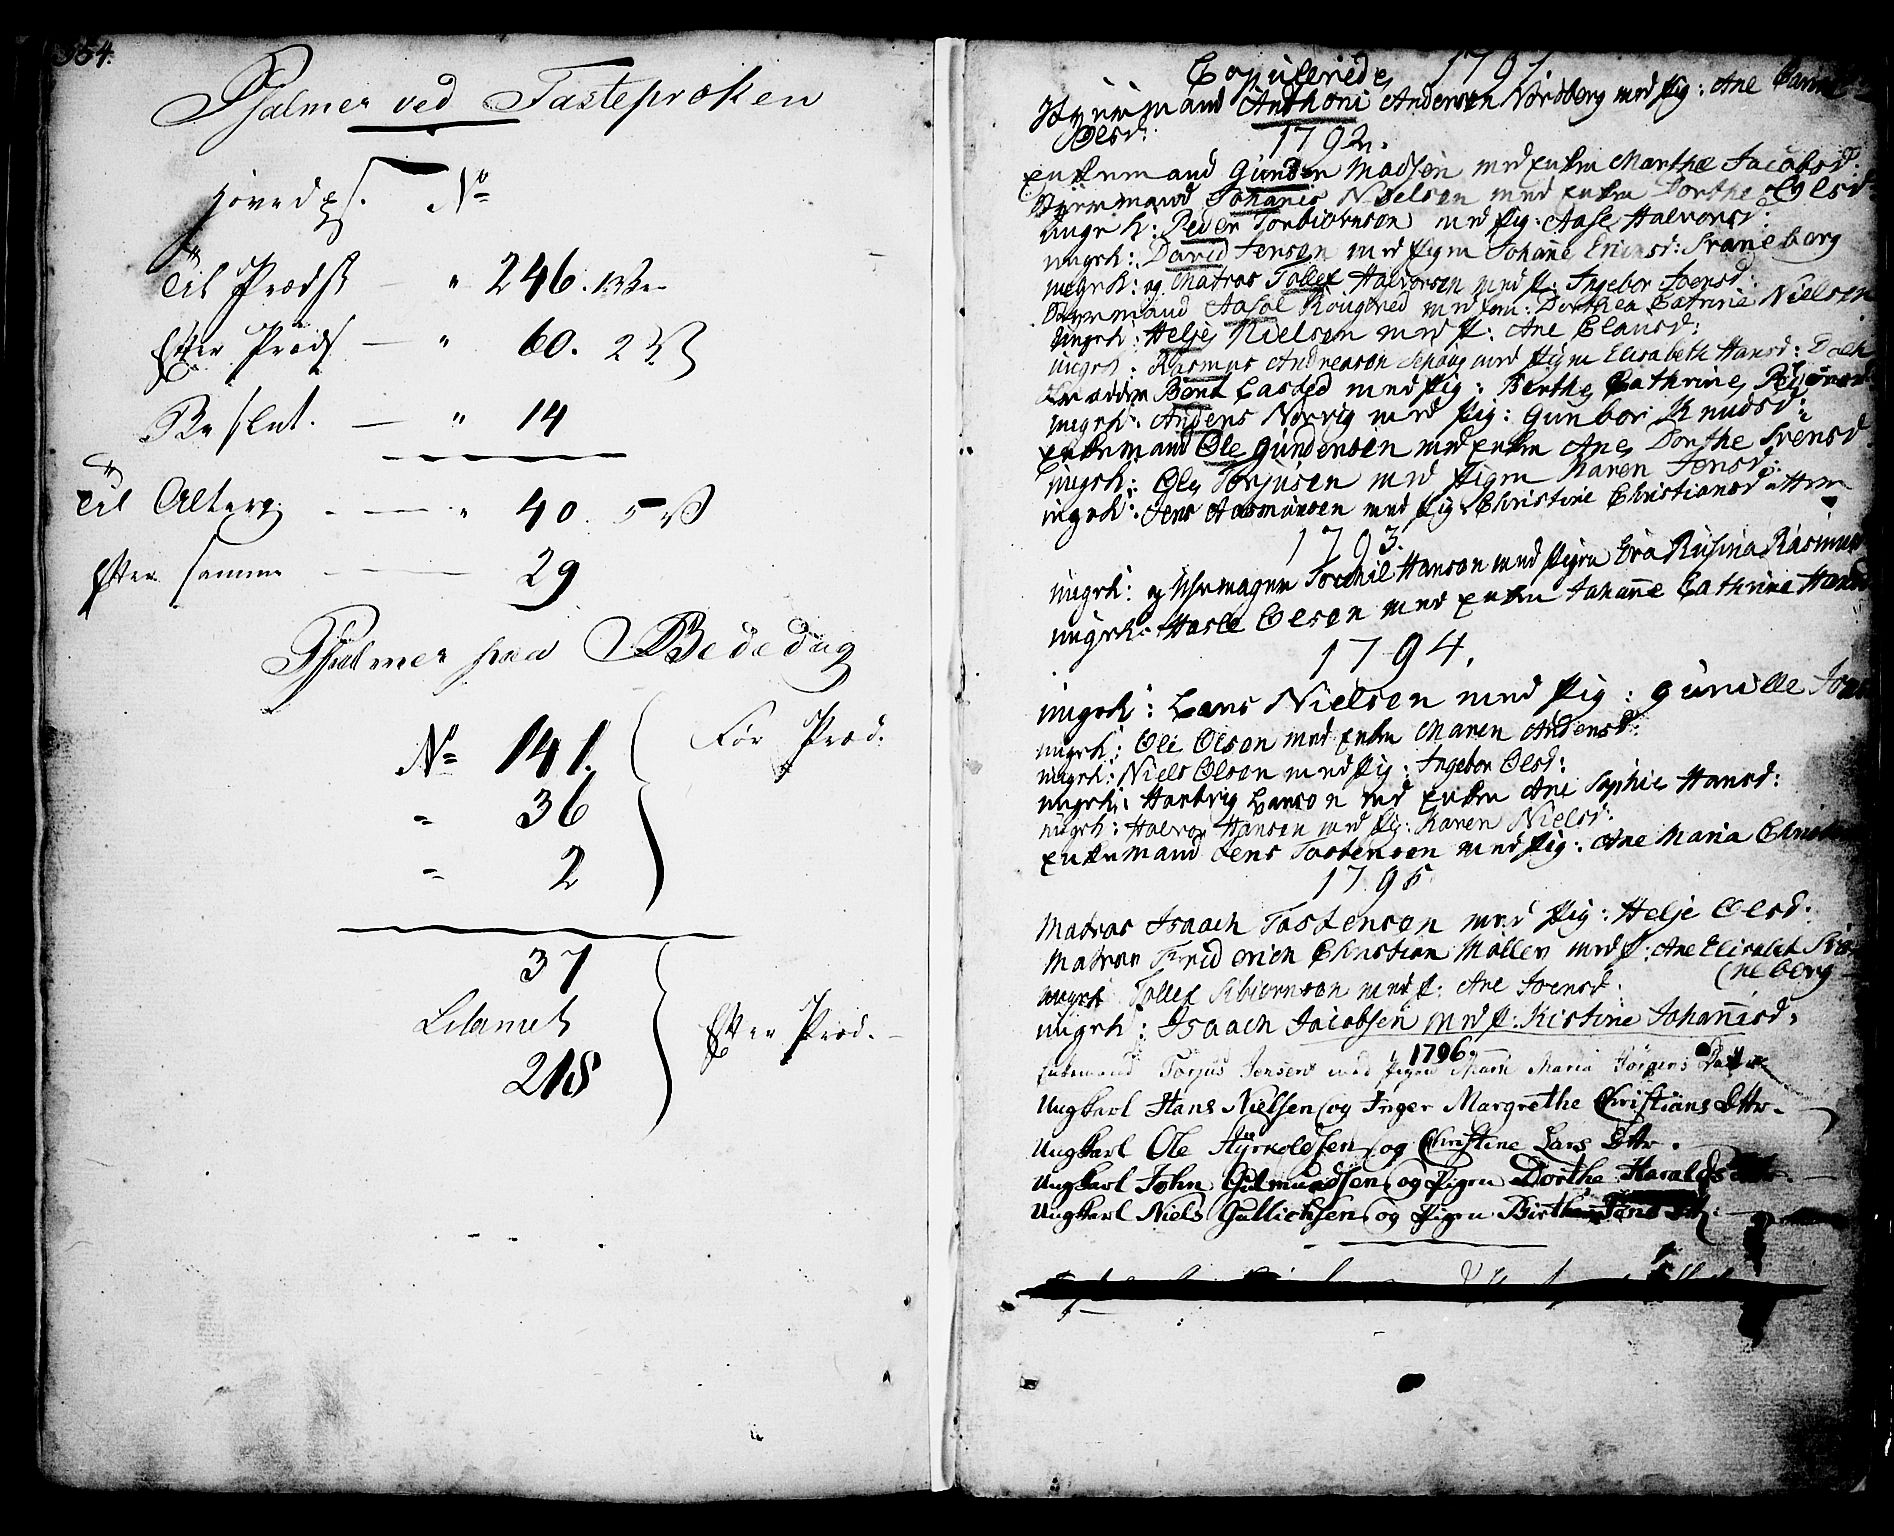 354.
Psalmer ved Fastepræken
Hoved Ps. No
Til Prædk — " 246.
Efter Præd — " 60. 2 V
Beslut. — " 14
Til Alterg — " 40. 5 V
Efter samme — 29
Psalmer paa Bededag
No 141. Før Præd.
" 36
" 2
37
Litaniet Efter Præd.
218
Copulerede 1791
Styrmand Anthoni Andersen Nordberg med Pig: Ane
Olsd:
1792.
Enkemand Gunder Madsen med Enken Marthe Jacobsd:
Styrmand Johanis Nielsen med Enken Dorthe Olsd
ungk: Peder Torbiørnsen med Pig: Aase Halvorsd:
ungk: David Jensen med Pigen Johanne Erichsd: Straneberg
ungk: og Matros Tollef Halvorsen med P: Ingebor Joensd:
Styrmand Aasol Rougsted med Dorthea Catrine Nielsen
ungk: Helje Nielsen med P: Ane Clausd:
ungk: Rasmus Andreasen med Pigen Elisabeth Hansd:
Bent Casted med Pig: Berthe Cathrine
ungk: Anders Norvig med Pig: Gunbor Knudsd:
Enkemand Ole Gundersen med Enken Ane Dorthe Svensd
ungk: Ole Torjusen med Pigen Karen Jensd:
ungk: Jens Aasmunsen med Pig Christine Christiansdatter
1793.
ungk: og Uhrmager Torchil Hansen med Pigen Eva Rusina Rasmus
ungk: Hasle Olsen med Enken Johanne Cathrine Hansd
1794.
ungk: Lars Nielsen med Pig: Gunille
ungk: Ole Olsen med Enken Maren Andersd:
ungk: Niels Olsen med Pig: Ingebor Olsd:
ungk: Hartvig Larsen med Enken Ane Sophie Hansd:
ungk: Halvor Hansen med Pig: Karen Nielsd:
Enkemand Jens Tostensen med Pig: Ane Maria
1795
Matros Isaach Tostensen med Pig: Helje Olsd:
Matros Friderich Christian Møller med P: Ane Elisabet Stra-
(neberg
ungk Tollef Esbiørnsen med P: Ane Joensd:
ungk: Isaach Jacobsen med P: Kistine Johannisd:
1796.
Enkemand Torjus Jensen med Pigen Maria Jørgens Datter
Ungkarl Hans Nielsen og Inger Margrethe Christians Dttr.
Ungkarl Ole Hyrkoldsen og Christine Lars Dttr.
Ungkarl John Gulmundsen og Pigen Dorthe Haralds
Ungkarl Niels Gullichsen og Pigen Birthe Jens Dttr.